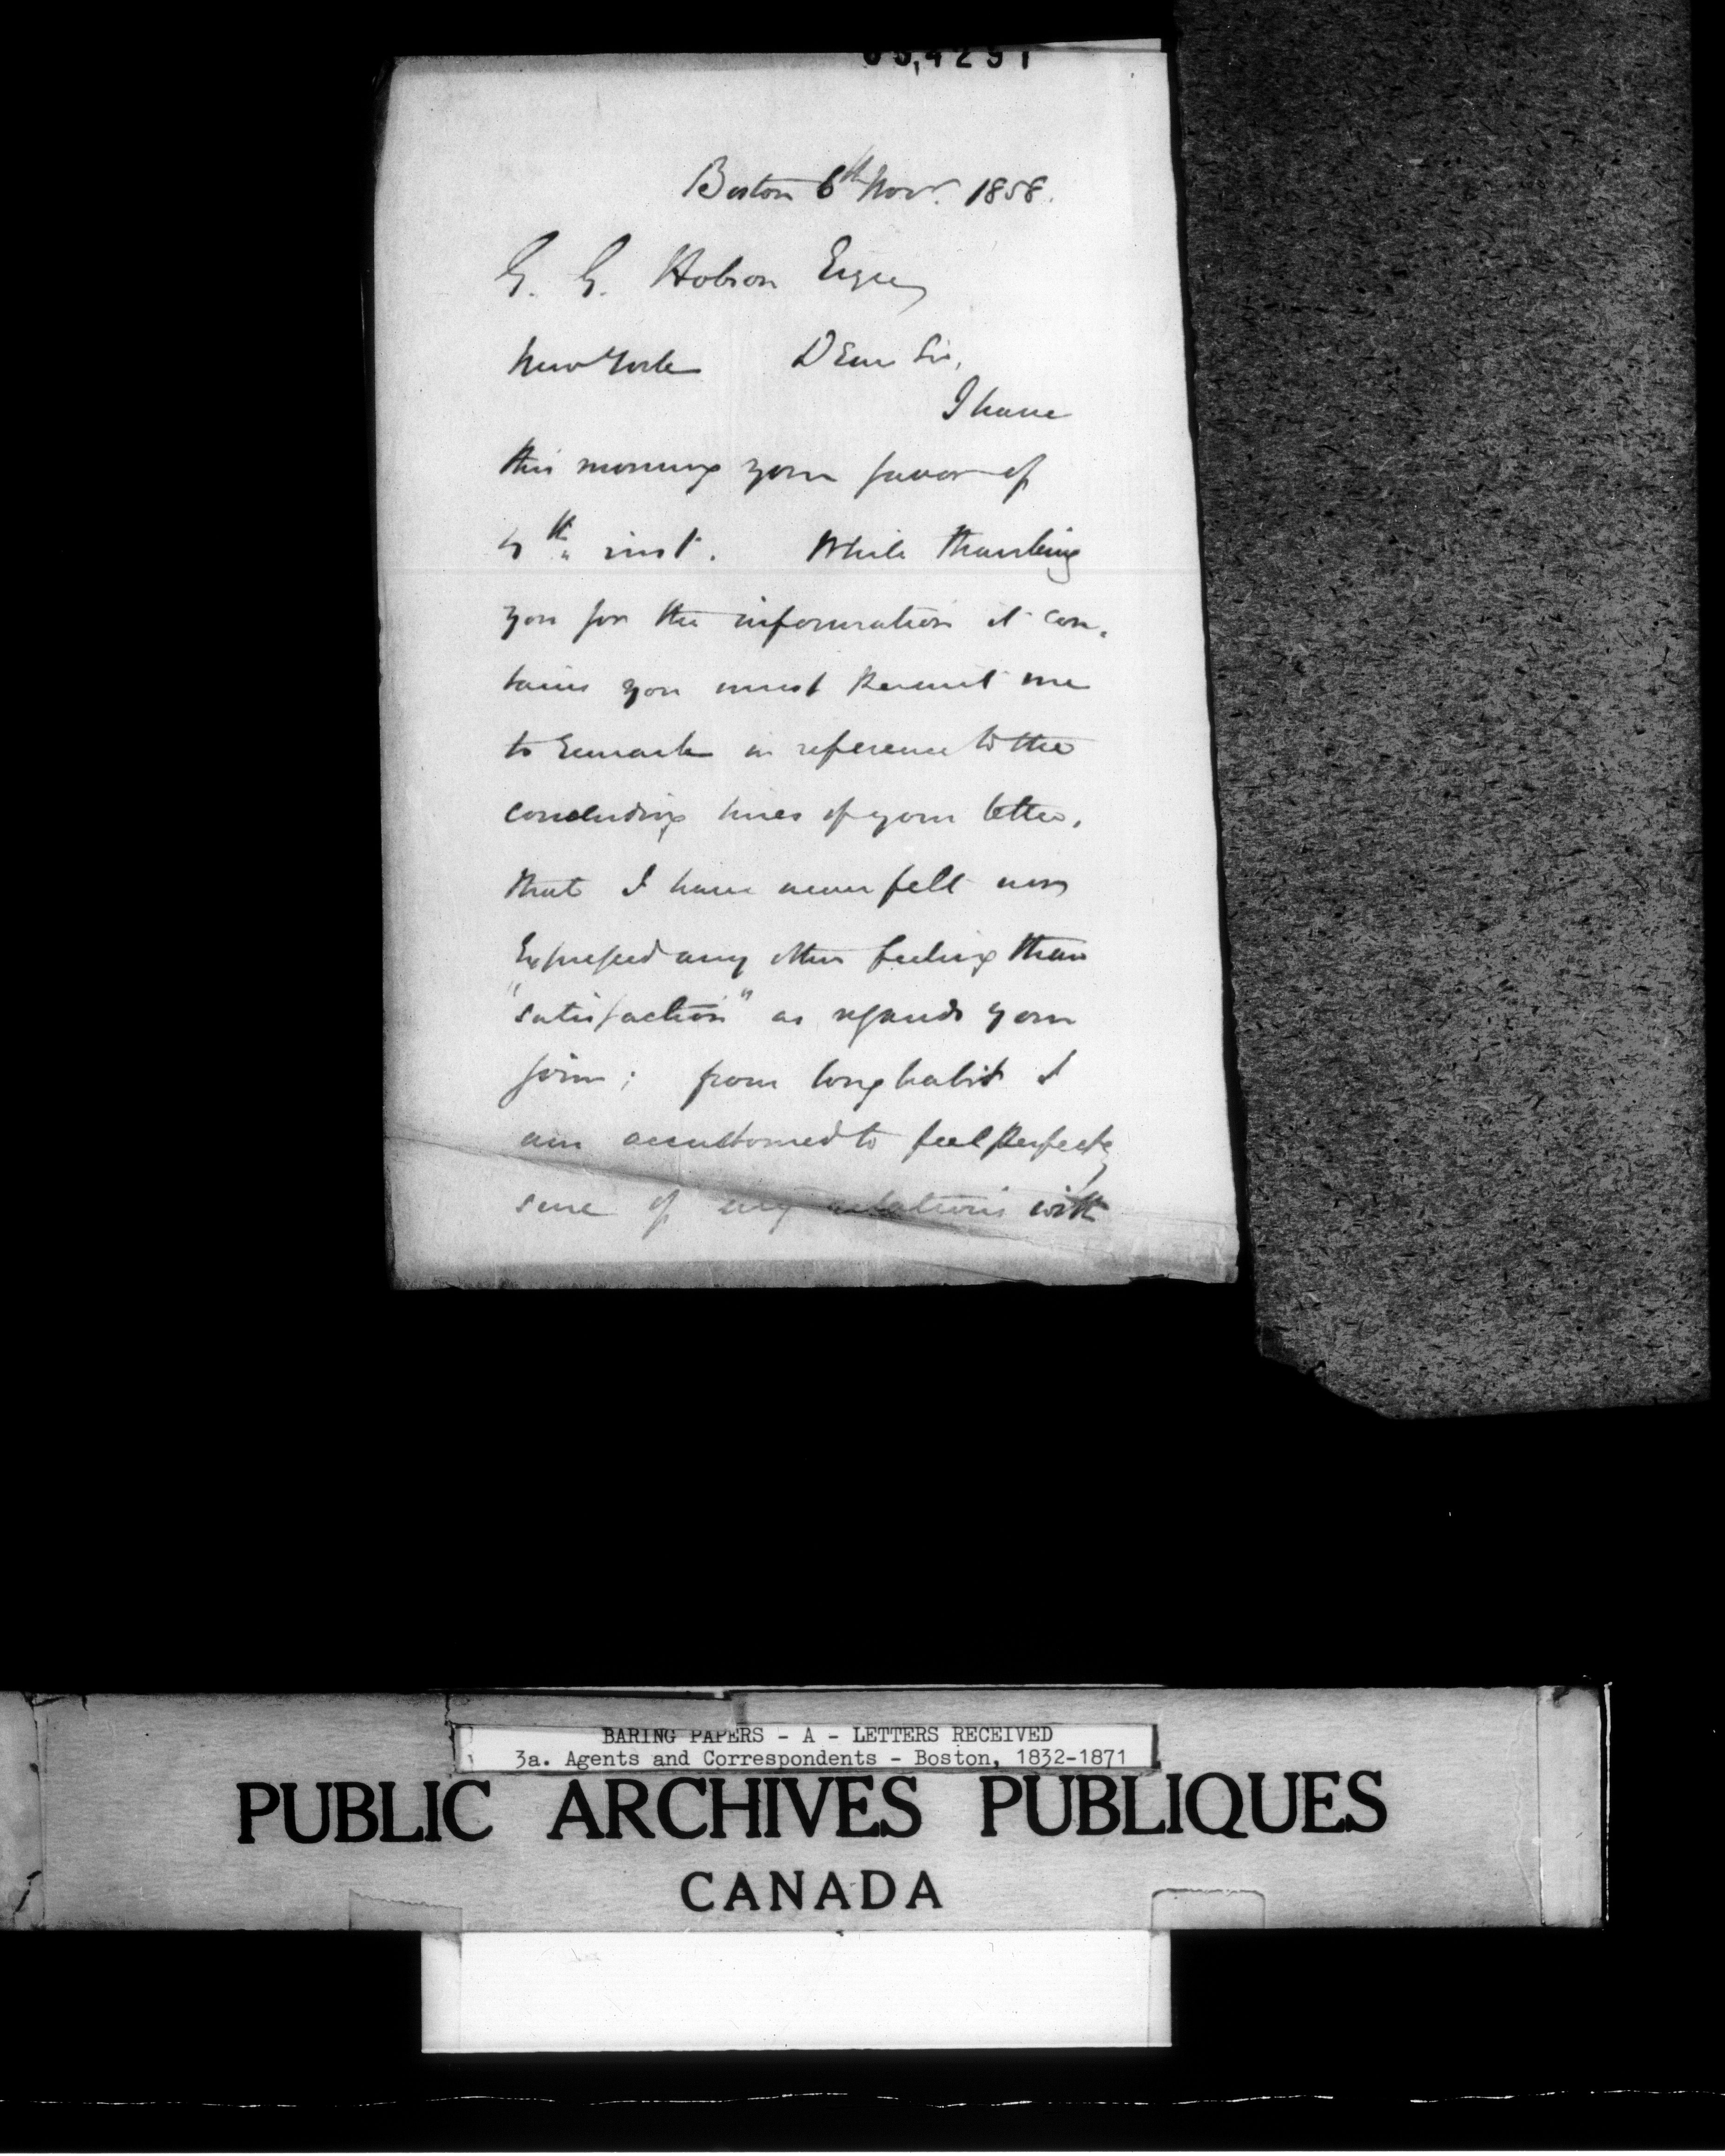 Boston 6th Novr. 1858.
G. G. Hobson Esqre
New York Dear Sir,
I have
this morning your favor of
4th inst. While thanking
you for the information it con-
tains you must permit me
to remark in reference to the
concluding lines of your letter,
that I have never felt nor
Expressed any other feeling than
"satisfaction" as regards your
firm; from long habit I
am accustomed to feel perfectly
sure of my relations with
BARING PAPERS - A - LETTERS RECEIVED
3a. Agents and Correspondents - Boston, 1832-1871
PUBLIC ARCHIVES PUBLIQUES
CANADA